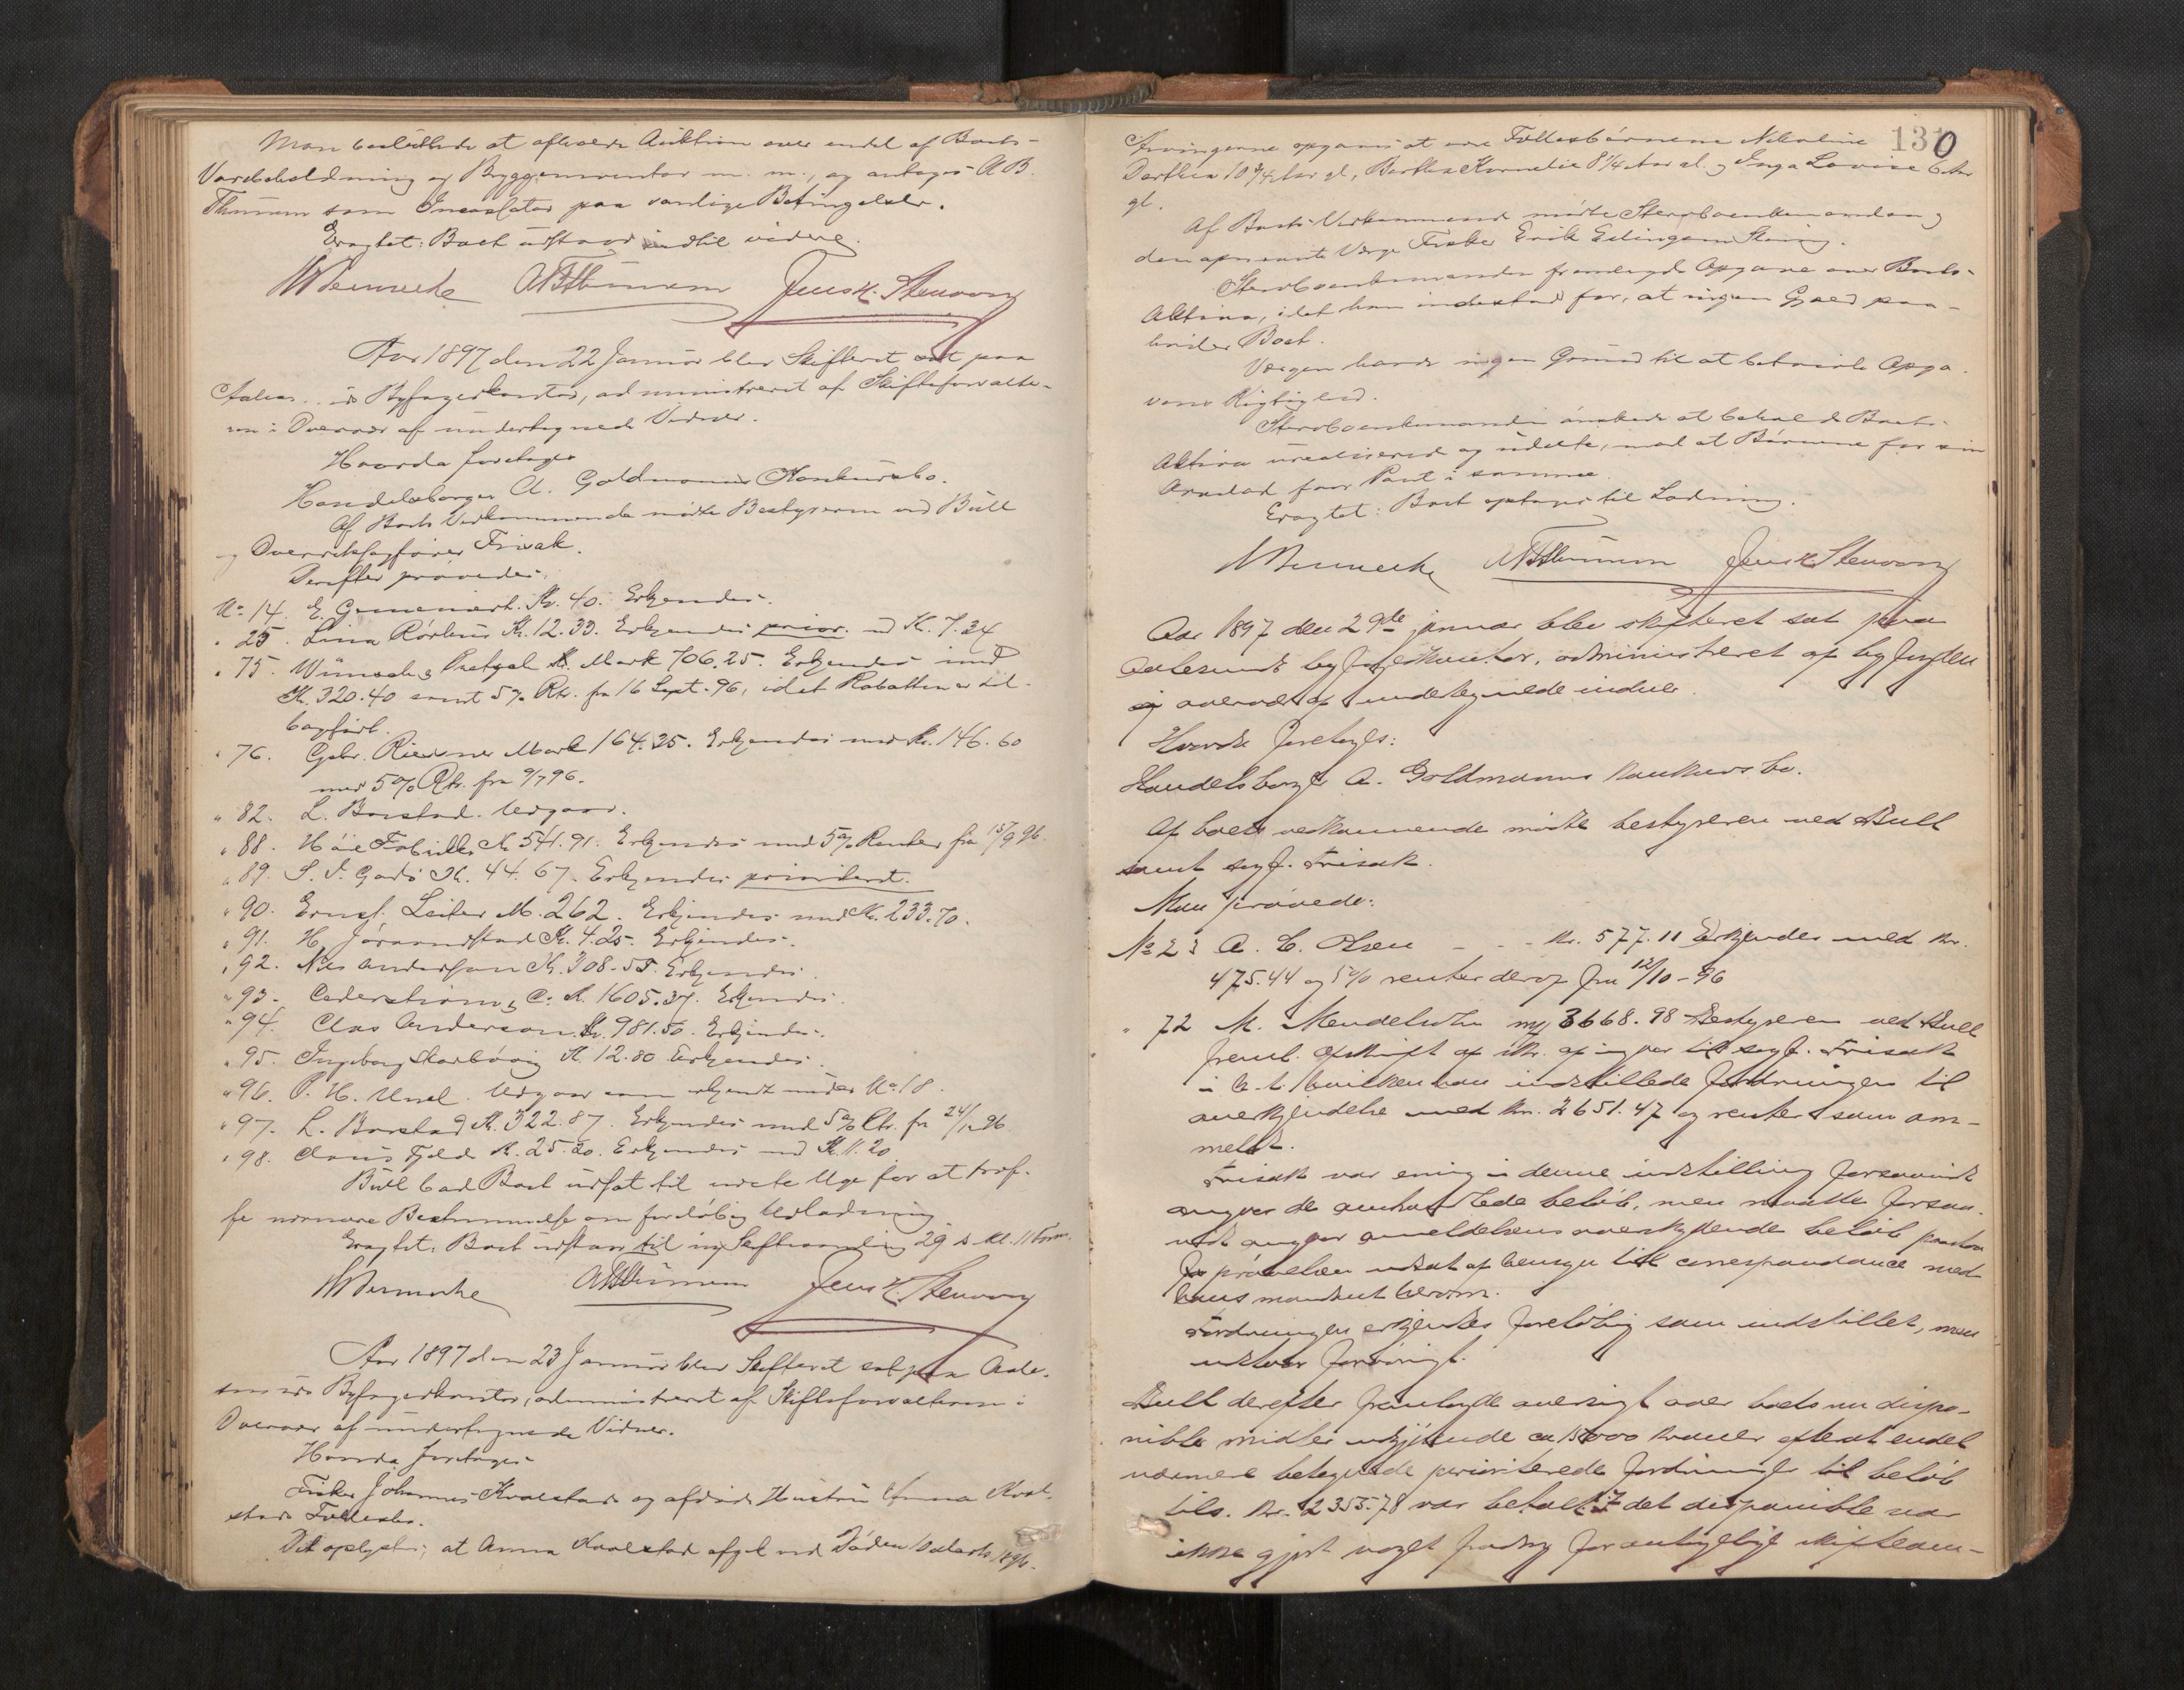 Man besluttede at afholde Auktion over endel af Boets
Varebeholdning og Bryggeinventar m. m., og antoges A B.
Thunem som Incassator paa vanlige Betingelser.
Eragtet: Boet udstaar indtil videre.
ABThunem Jens K. Stenvaag
Aar 1897 den 22 Januar blev Skifteret sat paa
Aalesunds Byfogedkontor, administreret af Skifteforvalte-
ren i Overvær af undertegnede Vidner.
Hvorda foretoges
Handelsborger A. Goldmanns Konkursbo.
Af Boets Vedkommende mødte Bestyreren ved Bull
og Overretssagfører Frisak.
Derefter prøvedes:
No 14. E. Kr. 40. Erkjendes.
" 25. Lina Kr. 12.33. Erkjendes prior. med K. 7.34
" 75. Wünsche & Pretzel Mark 706.25. Erkjendes med
Kr. 320.40 samt 5% Rtr. fra 16 Sept. 96, idet Rabatten er til-
bagført.
" 76. Gebr. Mark 164.25. Erkjendes med Kr. 146.60
med 5% Rtr. fra 9/7 96.
" 82. L. Barstad. Udgaar.
" 88. Høie Fabriker K 541.91. Erkjendes med 5% Renter fra 15/9 96.
" 89. S. J. Gards K. 44.67. Erkjendes prioriteret.
" 90. Ernst Leiter M. 262. Erkjendes med Kr. 233.70.
" 91. H. Jørandstad K. 4.25. Erkjendes.
" 92. Nils Andersson K. 308.55. Erkjendes.
" 93. Cederstrøm & Co. K. 1605.37. Erkjendes.
" 94. Clas Anderson Kr. 981.50. Erkjendes.
" 95. Ingeborg K 12.80 Erkjendes.
" 96. P. H. Udgaar som erkjendt under No 18.
" 97. L. Barstad K. 322.87. Erkjendes med 5% Rtr. fra 24/12 96.
" 98. Claus Fjeld K. 25.20. Erkjendes med K. 11.20
Bull bad Boet udsat til neste Uge for at træf-
fe nærmere Bestemmelse om foreløbig Udlodning
Eragtet: Boet udstaar til ny Skiftesamling 29 ds Kl. 11 Form.
ABThunem Jens K. Stenvaag
Aar 1897 den 23 Januar blev Skifteret sat paa Aale-
sunds Byfogedkontor, administreret af Skifteforvalteren i
Overvær af undertegnede Vidner.
Hvorda foretoges
Fisker Johannes Kvalstad og afdøde Hustru Anna Kval-
stads Fællesbo.
Det oplystes, at Anna Kvalstad afgik ved Døden 1896.
130
Arvingerne opgaves at være Fællesbørnene Nikoline
Dorthea 10 3/4 Aar gl., Berthea Kornelie 8 1/4 Aar gl. og Inga Lovise 6 Aar
gl.
Af Boets Vedkommende mødte Sterboenkemanden og
den opnævnte Værge Fisker Erik
Sterboenkemanden fremlagde Opgave over Boets
Aktiva, idet han indestod for, at ingen Gjæld paa-
hviler Boet.
Værgen havde ingen Grund til at betvivle Opga-
vens Rigtighed.
Sterboenkemanden ønskede at beholde Boets
Aktiva urealiserede og udelte, mod at Børnene for sin
Arvelod faar Pant i samme.
Eragtet: Boet optages til Lodning.
ABThunem Jens K Stenvaag
Aar 1897 den 29de januar blev skifteret sat paa
Aalesunds byfogedkontor, administreret af byfogden
i overvær af undertegnede vidner.
Hvorda foretoges:
Handelsborger A. Goldmanns konkursbo.
Af boets vedkommende mødte bestyreren ved Bull
samt sagf. Frisak.
Man prøvede:
No 23 A. C. Olsen - - - kr. 577.11 Erkjendes med kr.
475.44 og 5% renter deraf fra 12/10-96
" 72 M. Mendelsohn 3668.98 Bestyreren ved Bull
freml. afskrift af skr. af til sagf. Frisak
i hvilken han indstillede fordringen til
anerkjendelse med kr. 2651.47 og renter som an-
meldt.
Frisak var enig i denne indstilling forsaavidt
angaar de anførte beløb, men maatte forsaa-
vidt angaar anmeldelsens overskydende beløb paastaa
prøvelsen udsat af hensyn til correspondance med
hans mandant herom.
Fordringen erkjendes foreløbig som indstillet, men
udstaar forøvrigt.
Bull derefter fremlagde oversigt over boets nu dispo-
nible midler udgjørende ca 15000 kroner efterat endel
nærmere betegnede prioriterede fordringer til beløb
tils. kr. 2355.78 var betalt. I det disponible var
ikke gjort noget fradrag for antagelige skifteom-